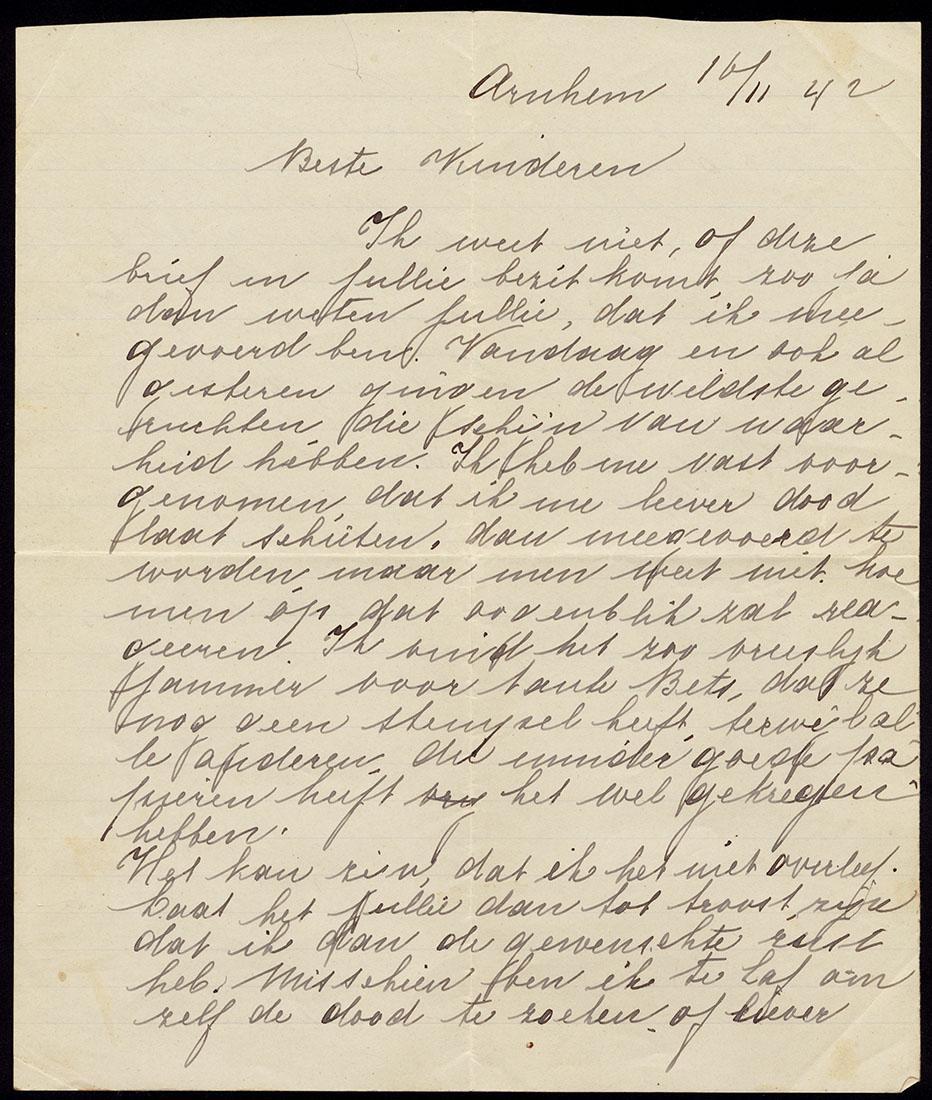 Arnhem 16/11 42
Beste Kinderen
Ik weet niet, of deze
brief in jullie bezit komt, zoo ja
dan weten jullie, dat ik mee-
gevoerd ben. Vandaag en ook al
gisteren gingen de wildste ge-
ruchten die schijn van waar-
heid hebben. Ik heb me vast voor-
genomen, dat ik me liever dood
laat schieten, dan meegevoerd te
worden, maar men weet niet hoe
men op dat oogenblik zal rea-
geeren. Ik vind het zoo vreeslijk
jammer voor tante Bets, dat ze
nog geen stempel heeft, terwijl al
le anderen, die minder goede pa-
pieren heeft het wel gekregen
hebben.
Het kan zijn, dat ik het niet overleef.
Laat het jullie dan tot troost zijn
dat ik dan de gewenschte rust
heb. Misschien ben ik te laf om
zelf de dood te zoeken of liever